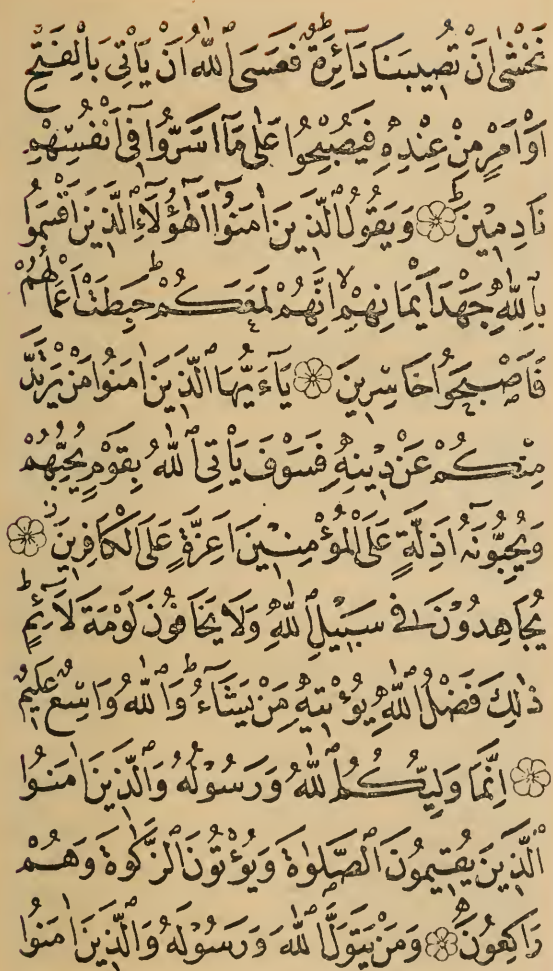 نَخْشٰى اَنْ تُصِيبَنَا دَآئِرَةٌ ۜ فَعَسَى اللّٰهُ اَنْ يَأْتِىَ بِالْفَتْحِ
اَوْ اَمْرٍ مِنْ عِنْدِهٖ فَيُصْبِحُوا عَلٰى مَآ اَسَرُّوا فِٓى اَنْفُسِهِمْ
نَادِمِينَ ۞ وَيَقُولُ الَّذِينَ اٰمَنُوٓا اَهٰٓؤُلَآءِ الَّذِينَ اَقْسَمُوا
بِاللّٰهِ جَهْدَ اَيْمَانِهِمْ اِنَّهُمْ لَمَعَكُمْ حَبِطَتْ اَعْمَالُهُمْ
فَاَصْبَحُوا خَاسِرِينَ ۞ يَآءَيُّهَا الَّذِينَ اٰمَنُوا مَنْ يَرْتَدَّ
مِنْكُمْ عَنْ دِينِهٖ فَسَوْفَ يَأْتِى اللّٰهُ بِقَوْمٍ يُحِبُّهُمْ
وَيُحِبُّونَهُٓ اَذِلَّةٍ عَلَى الْمُؤْمِنِينَ اَعِزَّةٍ عَلَى الْكَافِرِينَ ۞
يُجَاهِدُونَ فِى سَبِيلِ اللّٰهِ وَلَا يَخَافُونَ لَوْمَةَ لَآئِمٍ
ذٰلِكَ فَضْلُ اللّٰهِ يُؤْتِيهِ مَنْ يَشَآءُ وَاللّٰهُ وَاسِعٌ عَلِيمٌ
۞ اِنَّمَا وَلِيُّكُمُ اللّٰهُ وَرَسُولُهُ وَالَّذِينَ اٰمَنُوا
الَّذِينَ يُقِيمُونَ الصَّلٰوةَ وَيُؤْتُونَ الزَّكٰوةَ وَهُمْ
رَاكِعُونَ ۞ وَمَنْ يَتَوَلَّ اللّٰهَ وَرَسُولَهُ وَالَّذِينَ اٰمَنُوا